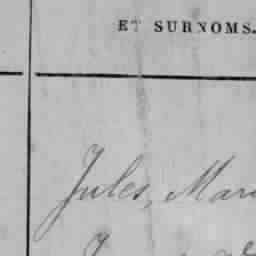 ET SURNOMS.
Jules, Mari